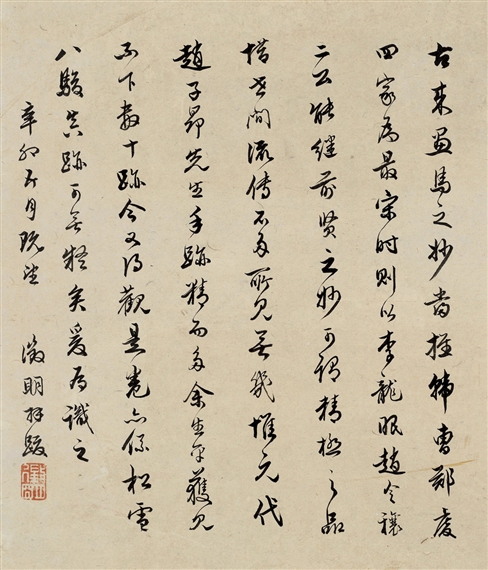 古來畫馬之妙當推韓曹鄭虔
四家為最宋時則以李龍眠趙令穰
二公能繼前賢之妙可謂精極之品
惜世間流傳不多所見無幾惟元代
趙子昂先生手跡精而多余生平獲見
不下數十跡今又得觀是卷亦係松雪
八駿真跡可無疑矣爰為識之
辛卯五月既望 徵明拜跋